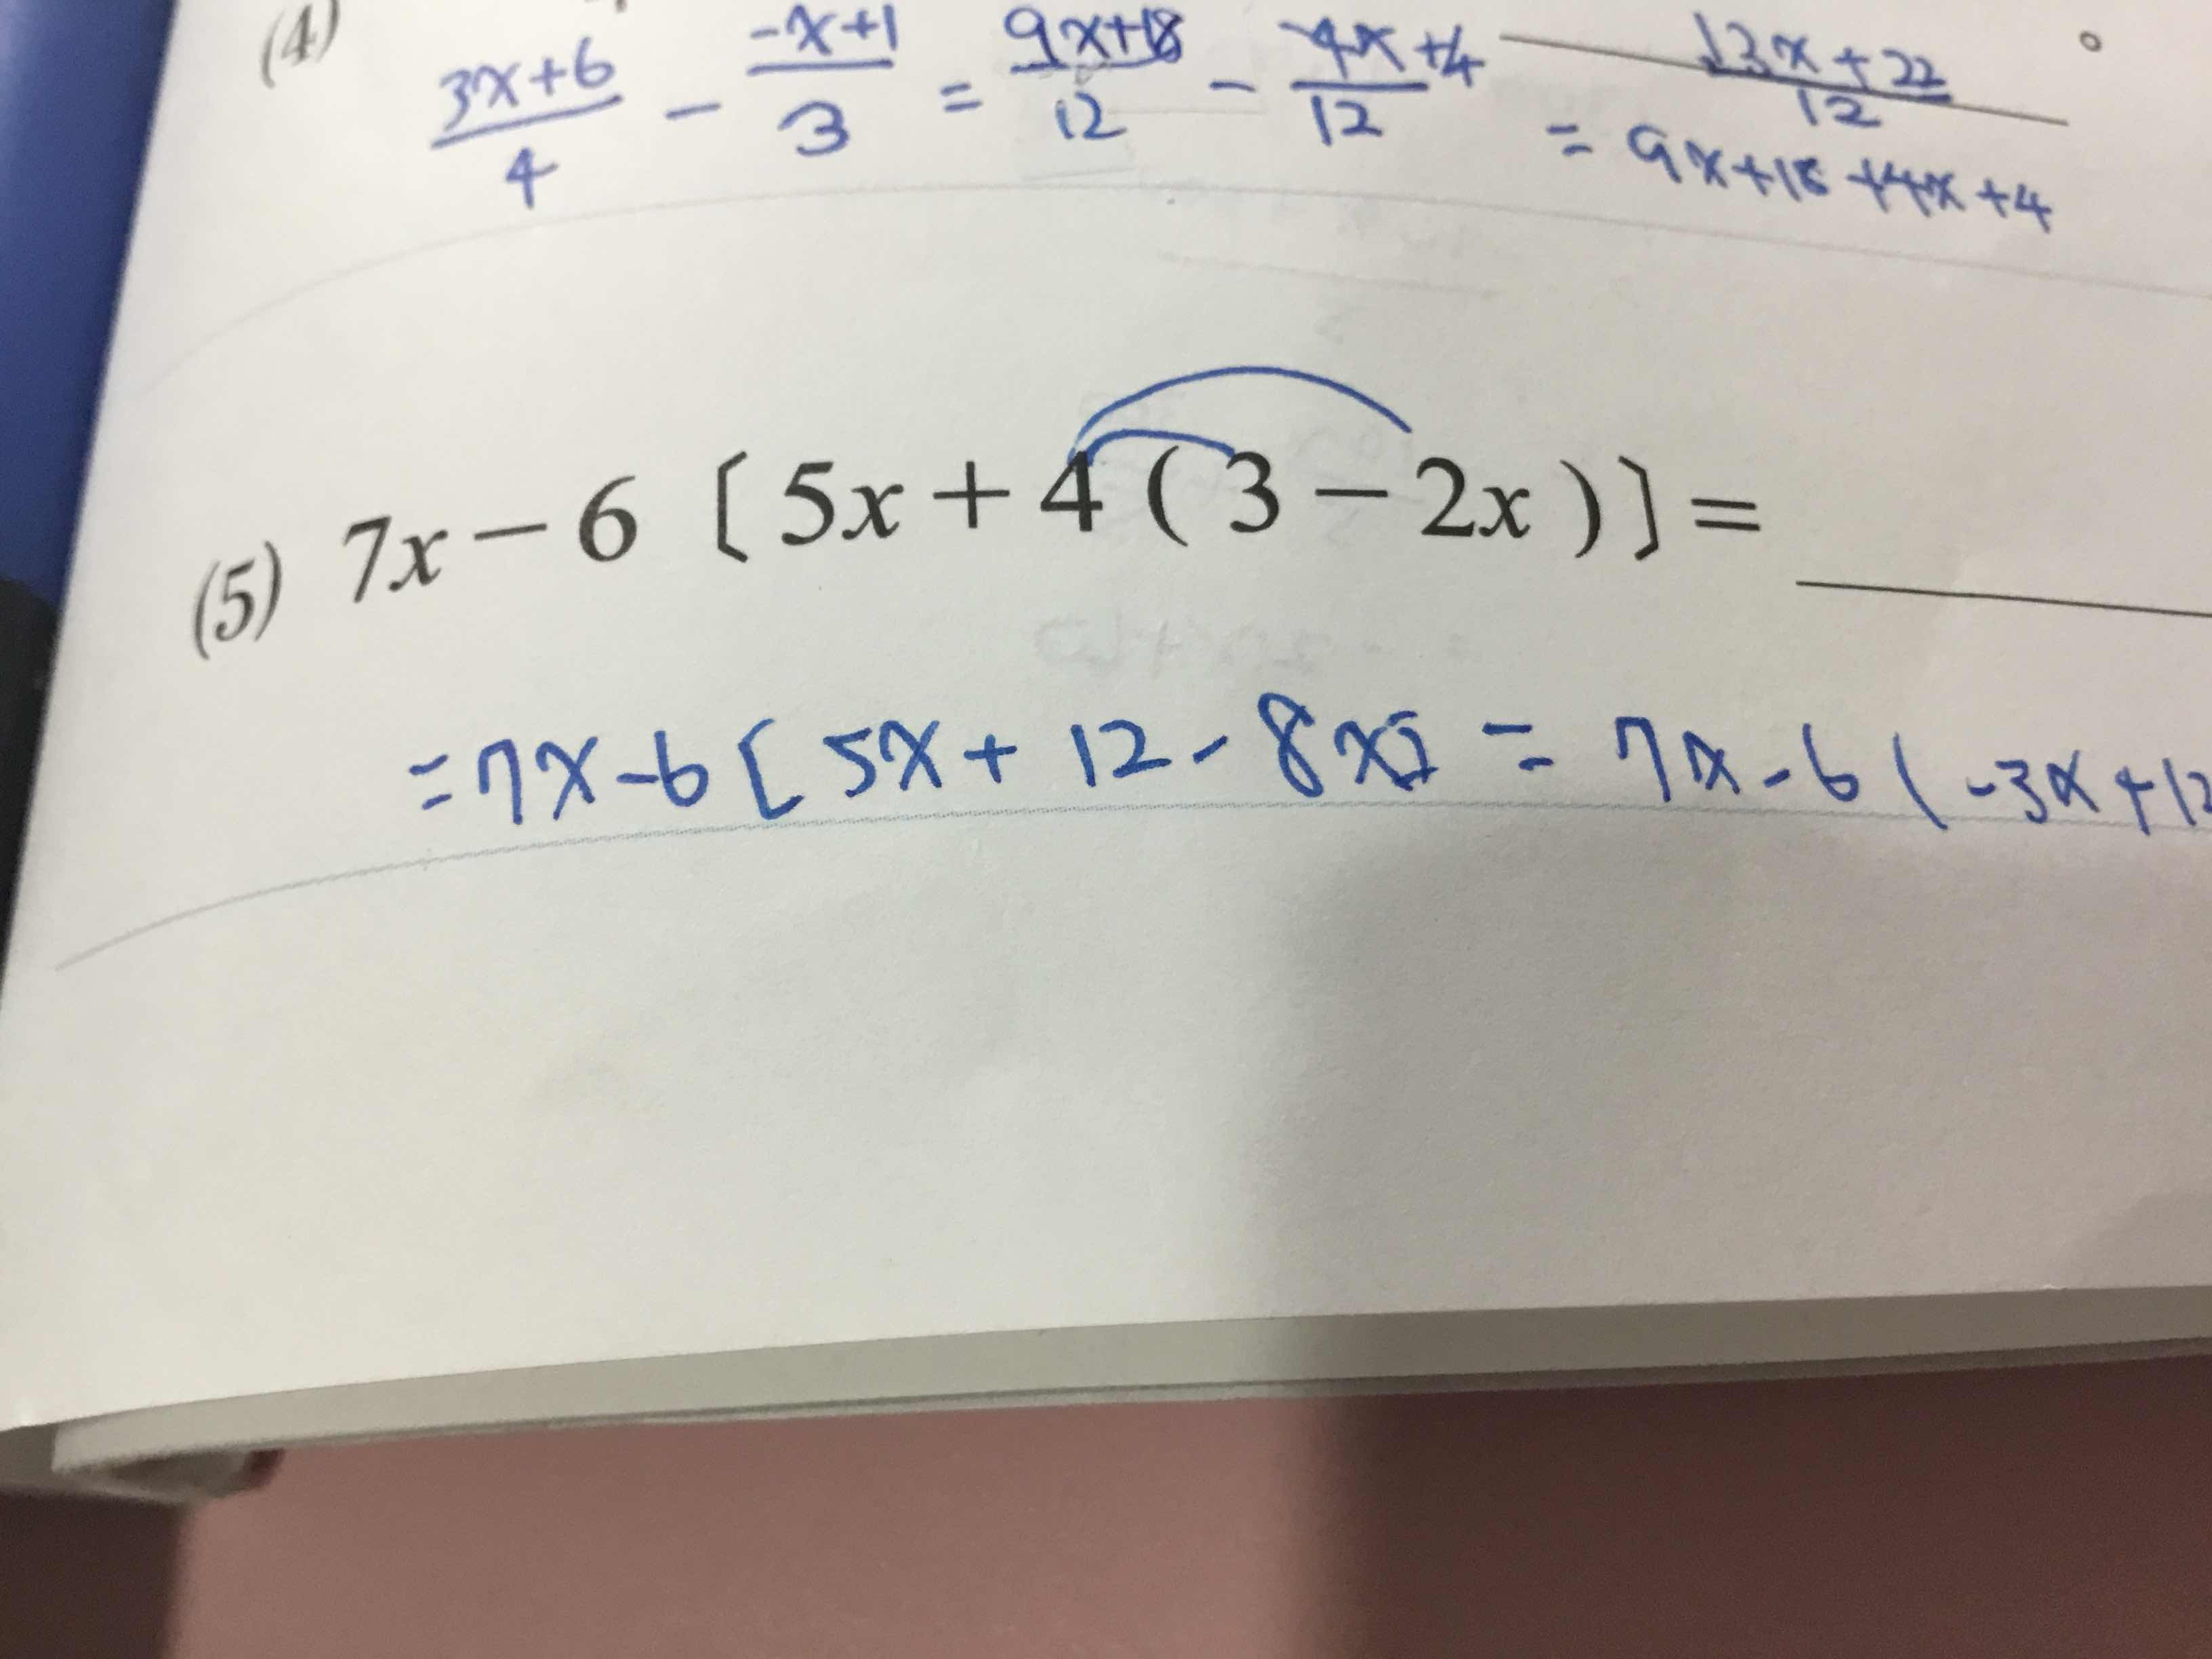 (4)
3x+6/4 - -x+1/3 = 9x+18/12 - -4x+4/12 13x+22/12 。
= 9x+18+4x+4
(5) 7x-6〔5x+4(3-2x)〕=
=7x-6[5x+12-8x] = 7x-6(-3x+12